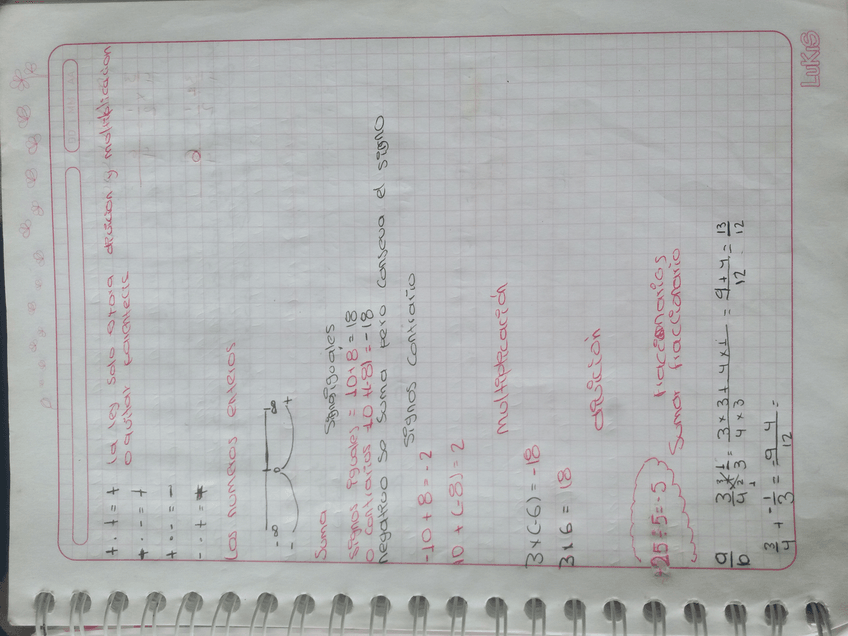 + . + = + la ley solo opera división y multiplicación
o quitar paréntesis
+ . - = +
+ . - = -
- . + =
Los números enteros
-∞ ∞
- 0 +
Suma
Signos iguales
Signos iguales = 10 + 8 = 18
o contrarios -10 + (-8) = -18
negativo so suma pero conserva el signo
Signos contrario
-10 + 8 = -2
10 + (-8) = 2
multiplicación
3 x (-6) = -18
3 x 6 = 18
división
-25 ÷ 5 = -5
fraccionarios
Sumar fraccionario
a/b 3/4 1/3 = 3 x 3 + 4 x 1 / 4 x 3 = 9 + 4 / 12 = 13/12
3/4 + -1/3 = = 9 4 / 12 =
LUKIS